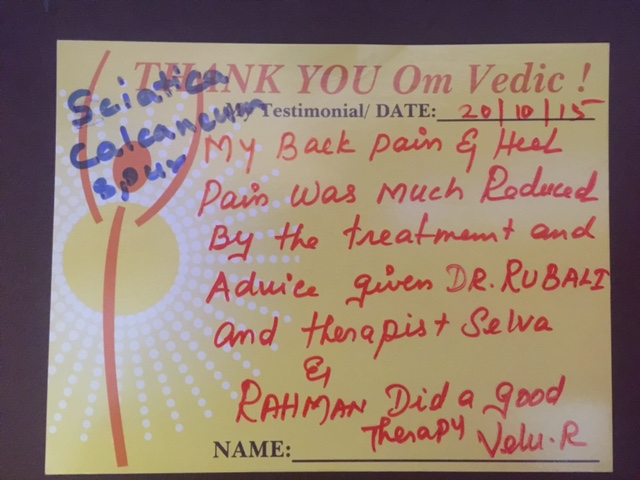 THANK YOU Om Vedic !
Sciatica
Calcaneum
spur
My Testimonial/ DATE: 20/10/15
My Back pain & Heel
Pain was much Reduced
By the treatment and
Advice given DR. RUBALI
and therapist Selva
&
RAHMAN Did a good
Therapy Velu.R
NAME: